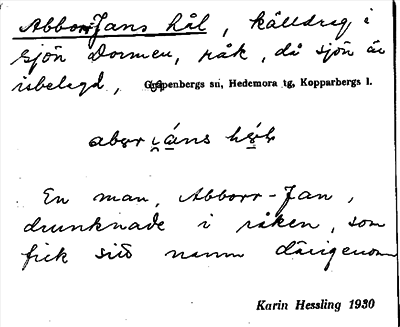 AbborrJans hål, källdrag i
sjön Dormen, råk, då sjön är
isbelagd, Garpenbergs sn, Hedemora tg, Kopparbergs l.
En man, Abborr-Jan,
drunknade i råken, som
fick sitt namn därigenom
Karin Hessling 1930